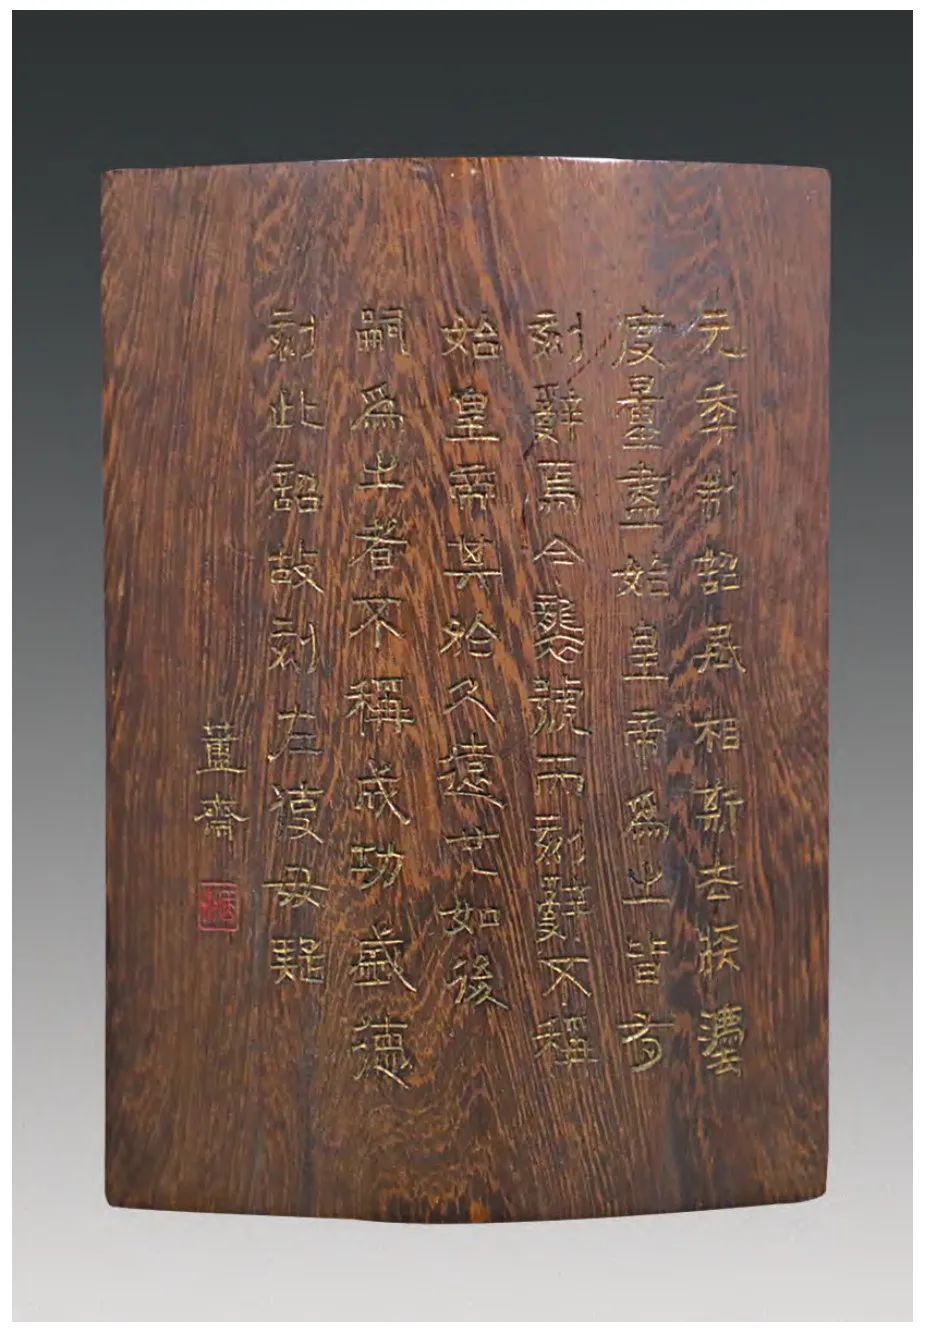 元年制詔丞相斯去疾灋
度量盡始皇帝為之皆有
刻辭焉今襲號而刻辭不稱
始皇帝其於久遠也如後
嗣為之者不稱成功盛德
刻此詔故刻左使毋疑
簠齋